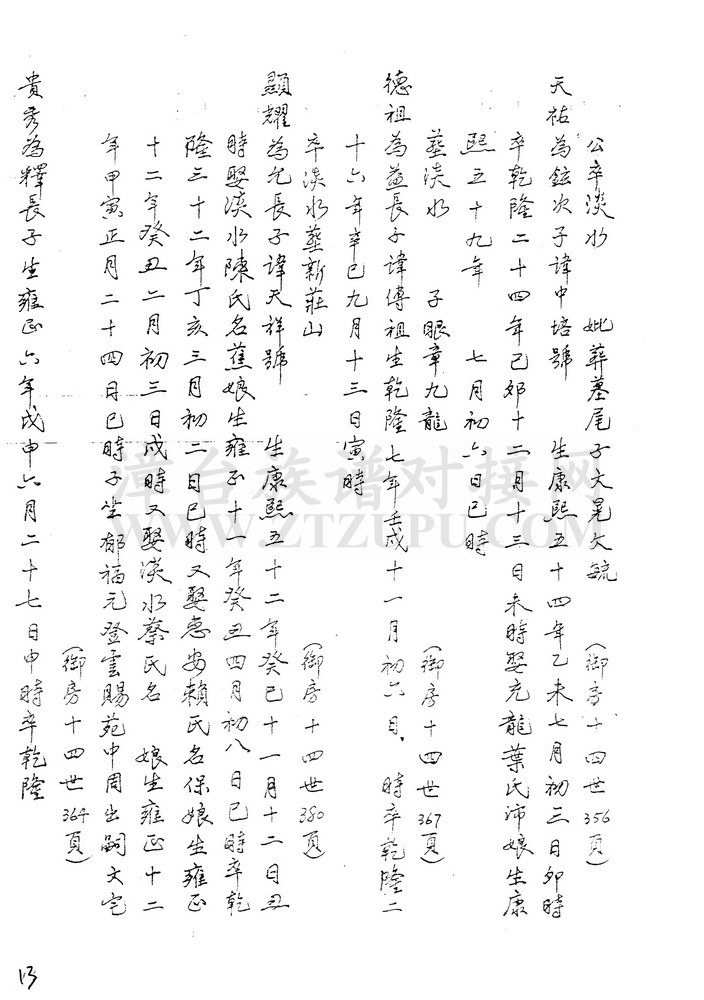 公卒淡水　妣葬墓尾子大晃大毓　(御房十四世356頁)
天祐為鉉次子諱中培號　生康熙五十四年乙未七月初三日卯時
卒乾隆二十四年己卯十二月十三日未時娶充龍葉氏沛娘生康
熙五十九年　七月初六日巳時
葬淡水　子眼章九龍　(御房十四世367頁)
德祖為益長子諱傅祖生乾隆七年壬戌十一月初六日、時卒乾隆二
十六年辛巳九月十三日寅時
卒淡水葬新莊山　(御房十四世380頁)
顯耀為允長子諱天祥號　生康熙五十二年癸巳十一月十二日丑
時娶淡水陳氏名蕉娘生雍正十一年癸丑四月初八日巳時卒乾
隆三十二年丁亥三月初二日巳時又娶惠安賴氏名保娘生雍正
十二年癸丑二月初三日戌時又娶淡水蔡氏名　娘生雍正十二
年甲寅正月二十四日巳時子坐郁福元登雲賜苑中周出嗣文宅
(御房十四世364頁)
貴秀為釋長子生雍正六年戊申六月二十七日申時卒乾隆
13
漳台族谱对接网
WWW.ZTZUPU.COM